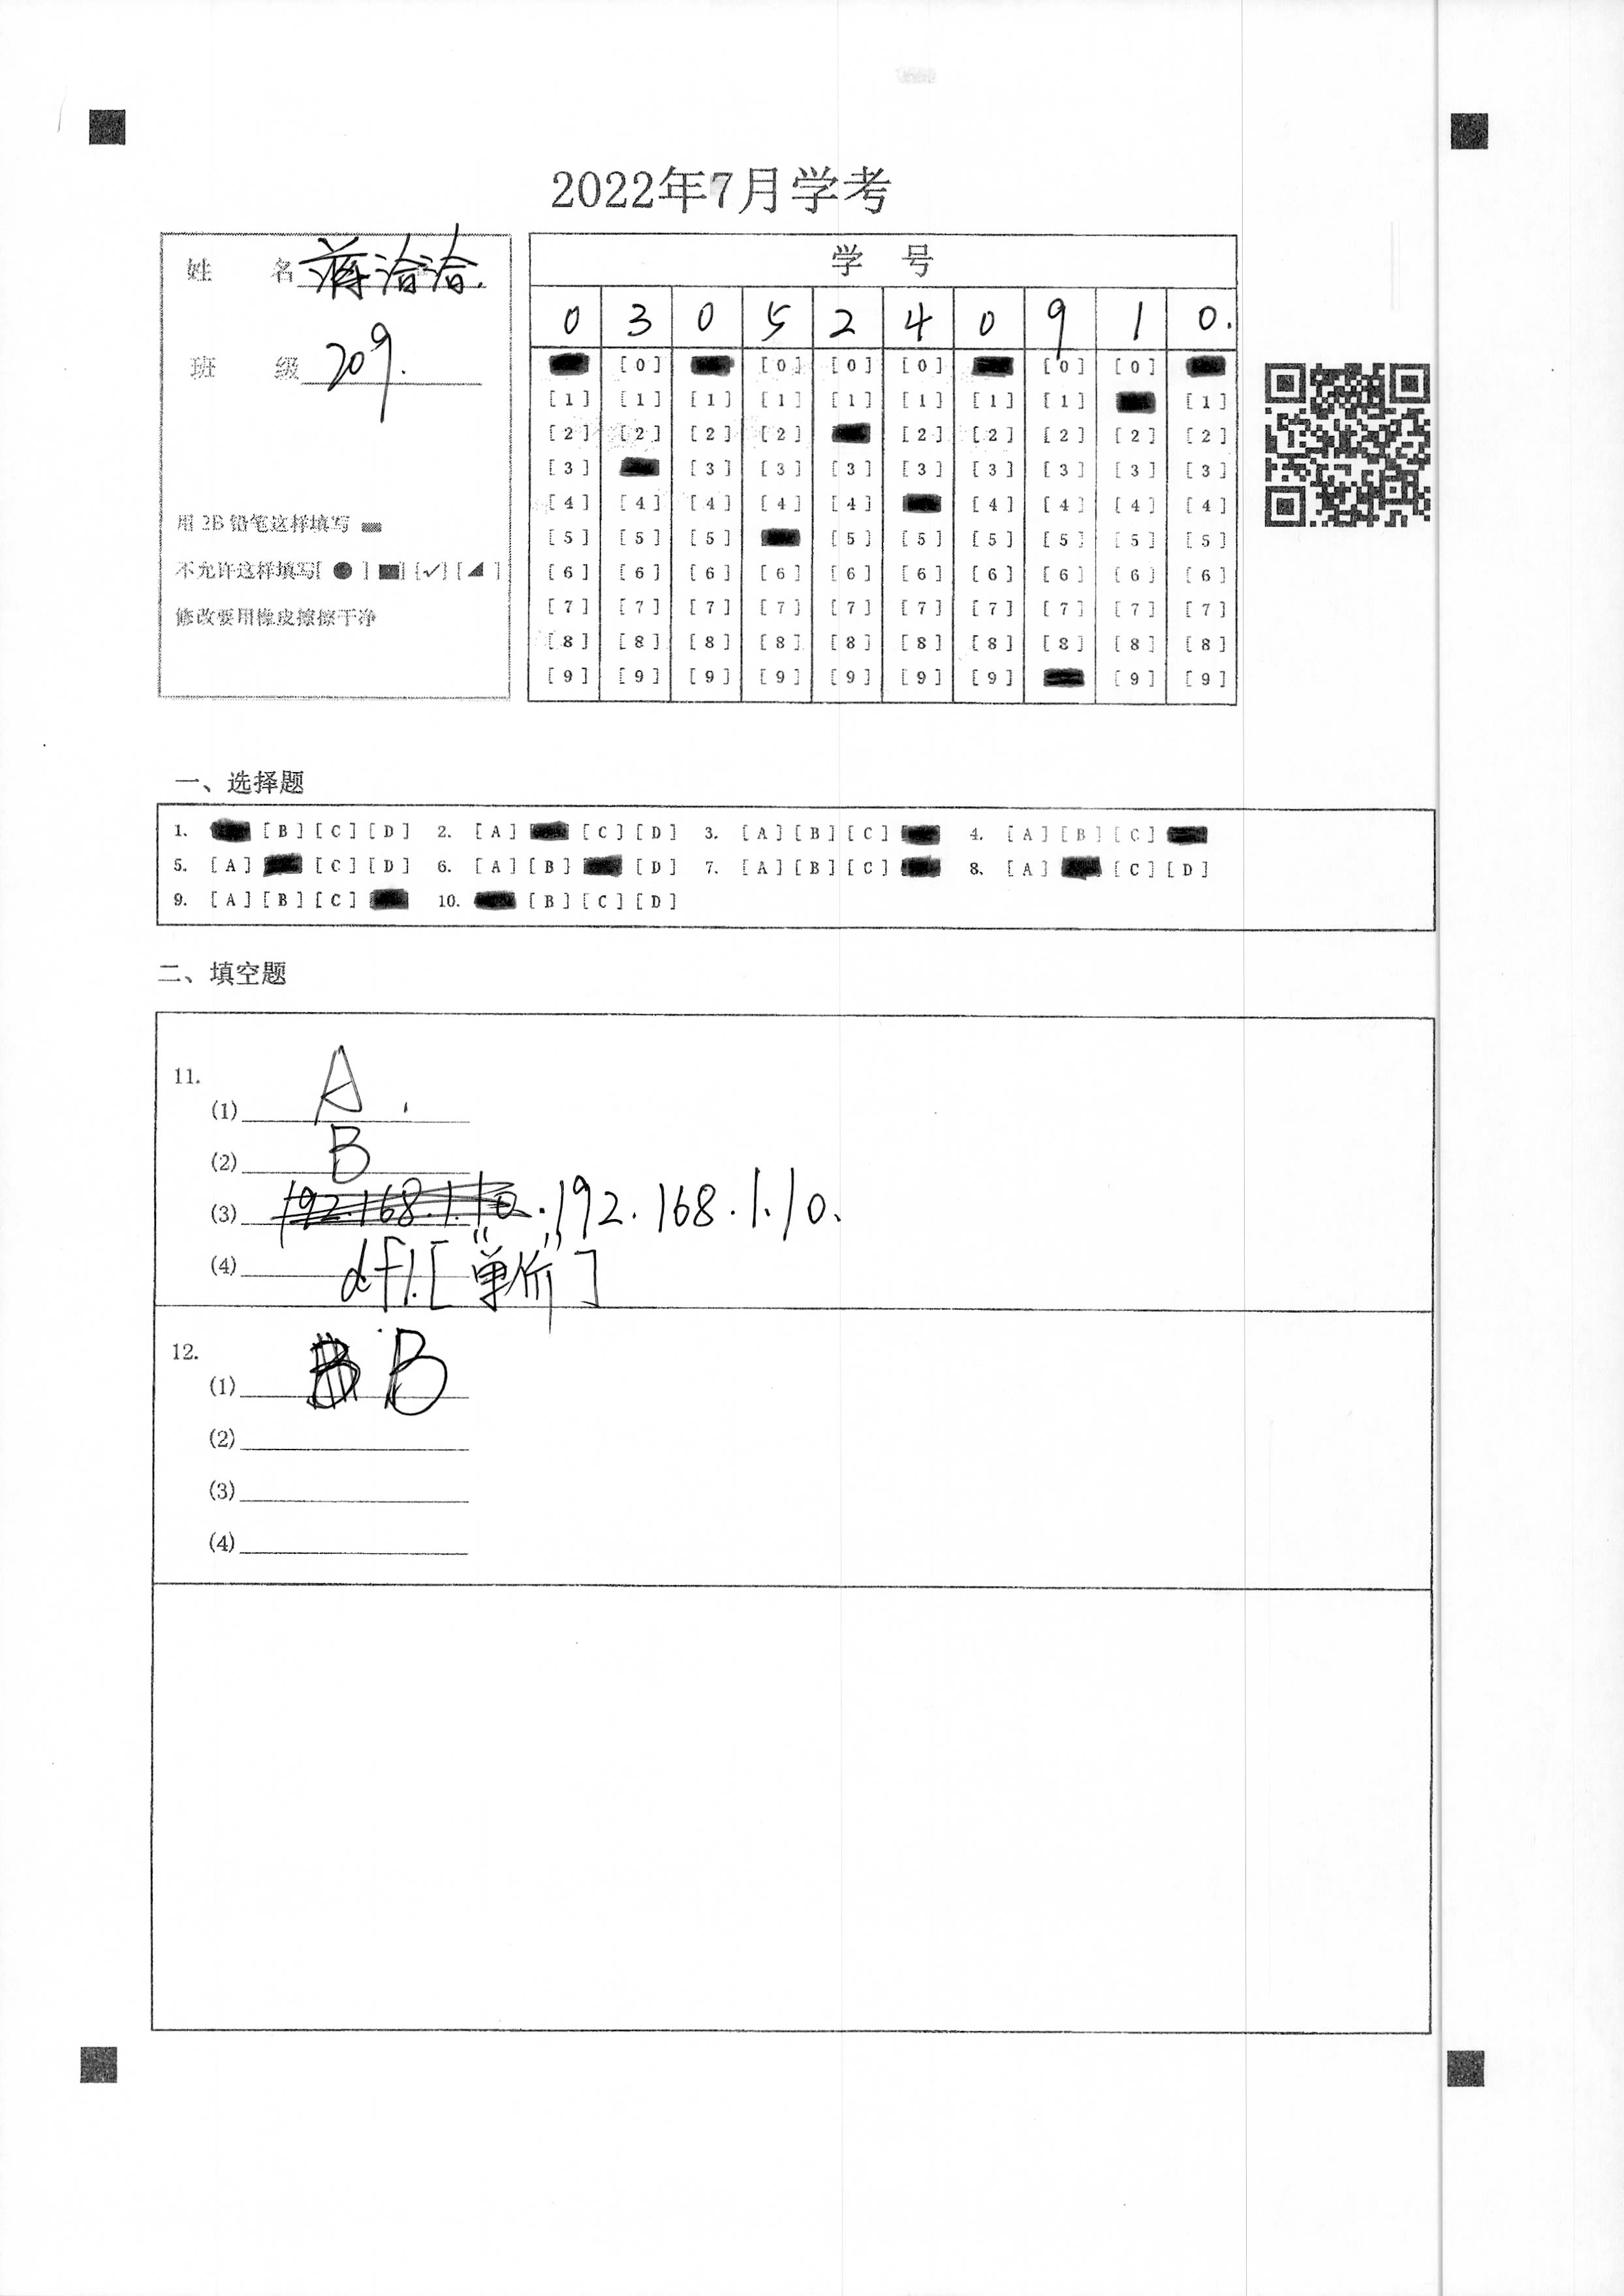 2022年7月学考
姓 名 蒋洽洽.
班 级 209.
用 2B 铅笔这样填写
不允许这样填写[ ● ] [■] [✓] [◢ ]
修改要用橡皮擦擦干净
学 号
0 3 0 5 2 4 0 9 1 0.
[0] [0] [0] [0] [0] [0]
[1] [1] [1] [1] [1] [1] [1] [1] [1]
[2] [2] [2] [2] [2] [2] [2] [2] [2]
[3] [3] [3] [3] [3] [3] [3] [3] [3]
[4] [4] [4] [4] [4] [4] [4] [4] [4]
[5] [5] [5] [5] [5] [5] [5] [5] [5]
[6] [6] [6] [6] [6] [6] [6] [6] [6] [6]
[7] [7] [7] [7] [7] [7] [7] [7] [7] [7]
[8] [8] [8] [8] [8] [8] [8] [8] [8] [8]
[9] [9] [9] [9] [9] [9] [9] [9] [9]
一、选择题
1. [B] [C] [D] 2. [A] [C] [D] 3. [A] [B] [C] 4. [A] [B] [C]
5. [A] [C] [D] 6. [A] [B] [D] 7. [A] [B] [C] 8. [A] [C] [D]
9. [A] [B] [C] 10. [B] [C] [D]
二、填空题
11.
(1) A.
(2) B
(3) 192.168.1.10. 192.168.1.10.
(4) df1.["单价"]
12.
(1) B B
(2)
(3)
(4)